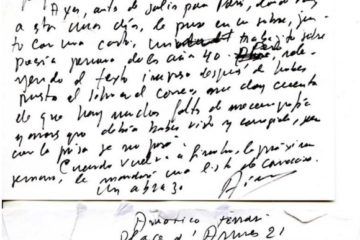 Ayer, antes de salir para París, donde voy
a estar unos días, le puse en un sobre, jun-
to con una carta, un trabajito sobre
poesía peruana de los años 40. rele-
yendo el texto impreso después de haber
puesto el sobre al correo, me doy cuenta
de que hay muchas faltas de mecanografía
y otras que debía haber visto y corregido, pero
con la prisa se me pasó.
Cuando vuelva a Ginebra, la próxima
semana, le mandaré una lista de correcciones.
Un abrazo
Americo Ferrari
Place d'Armes 21